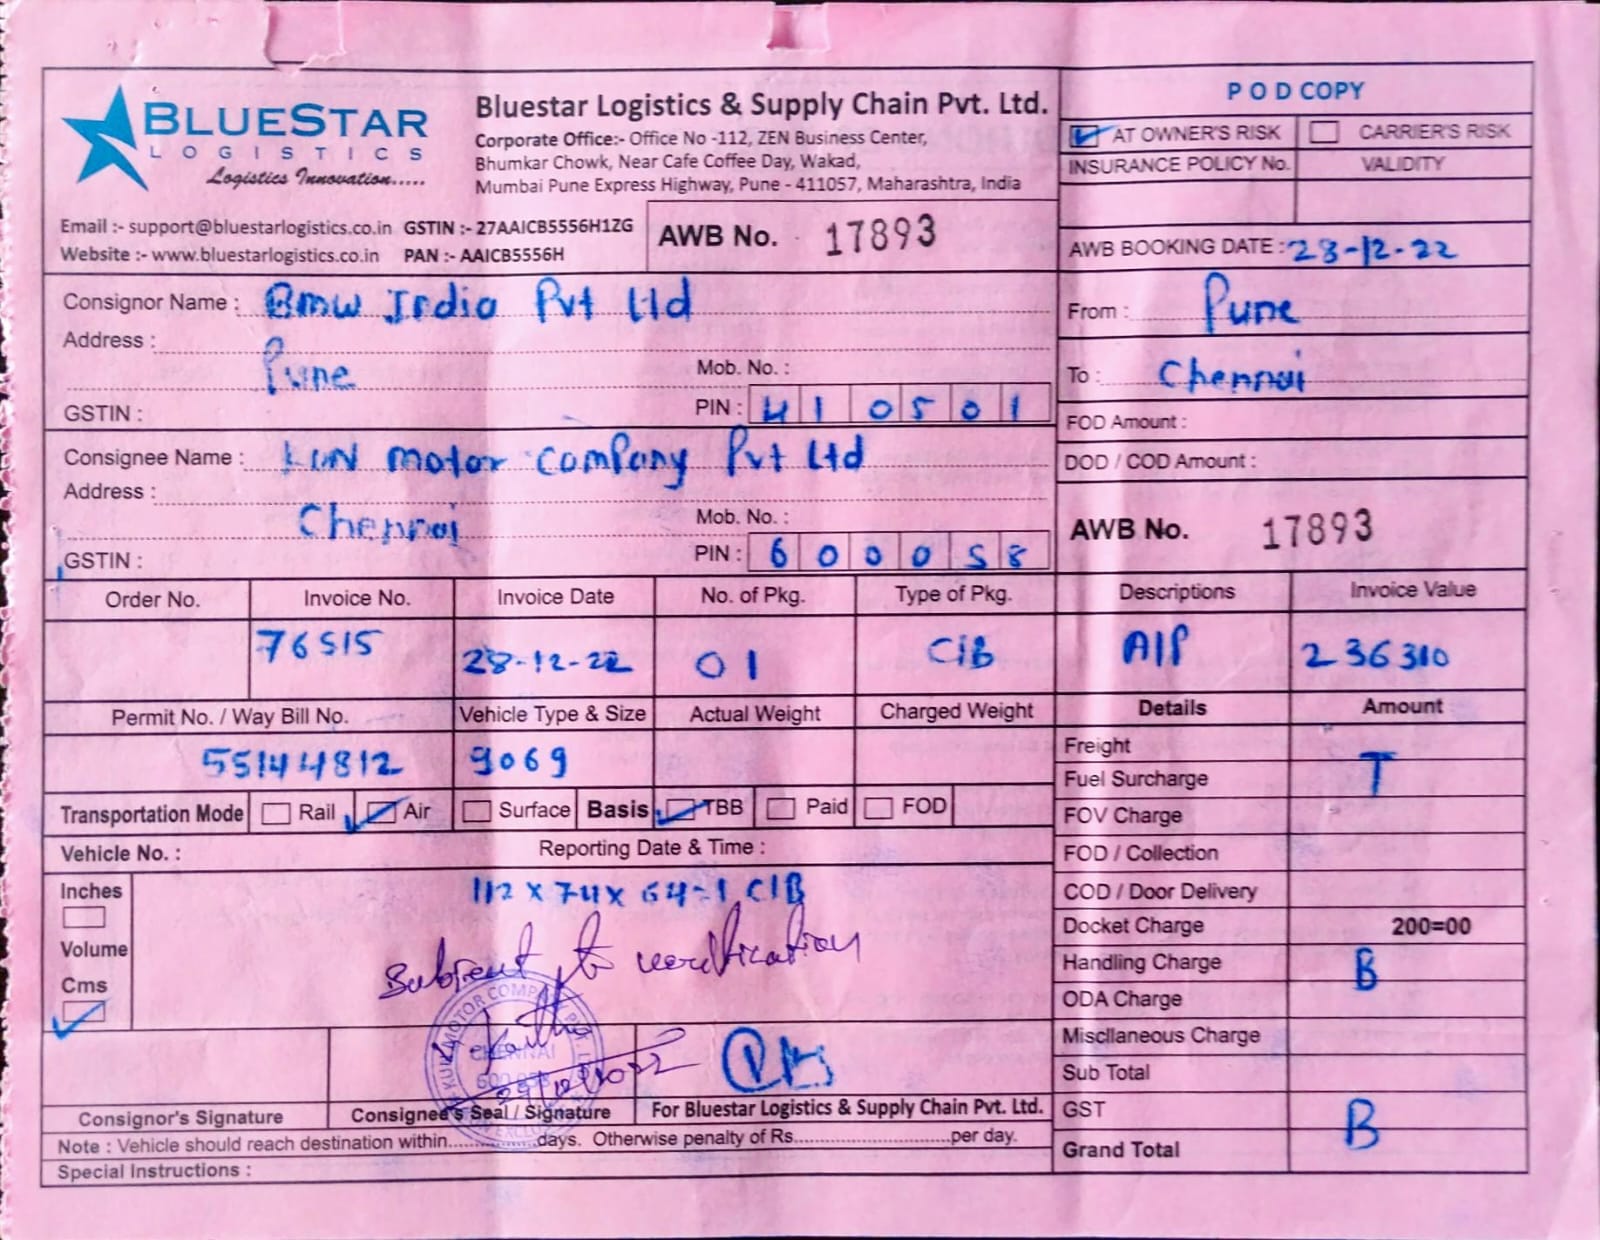 BLUESTAR
LOGISTICS
Logistics Innovation.....
Bluestar Logistics & Supply Chain Pvt. Ltd.
Corporate Office:- Office No -112, ZEN Business Center,
Bhumkar Chowk, Near Cafe Coffee Day, Wakad,
Mumbai Pune Express Highway, Pune - 411057, Maharashtra, India
Email :- support@bluestarlogistics.co.in GSTIN :- 27AAICB5556H1ZG
Website :- www.bluestarlogistics.co.in PAN :- AAICB5556H
AWB No. 17893
POD COPY
AT OWNER'S RISK CARRIER'S RISK
INSURANCE POLICY No. VALIDITY
AWB BOOKING DATE : 28-12-22
Consignor Name : Bmw India Pvt Ltd
Address :
Pune
Mob. No. :
GSTIN :
PIN : 410501
From : Pune
To : Chennai
FOD Amount :
DOD / COD Amount :
Consignee Name : KUN Motor Company Pvt Ltd
Address :
Chennai
Mob. No. :
GSTIN :
PIN : 600058
AWB No. 17893
Order No. Invoice No. Invoice Date No. of Pkg. Type of Pkg. Descriptions Invoice Value
76515 28-12-22 01 CIB AIP 236310
Permit No. / Way Bill No. Vehicle Type & Size Actual Weight Charged Weight Details Amount
55144812 9069
Freight
Fuel Surcharge T
Transportation Mode Rail Air Surface Basis TBB Paid FOD
FOV Charge
Vehicle No. : Reporting Date & Time :
FOD / Collection
Inches
112 x 74 x 64-1 CIB
COD / Door Delivery
Docket Charge 200=00
Volume
Subject to verification
Handling Charge B
Cms
ODA Charge
Miscllaneous Charge
Sub Total
KUN MOTOR COMPANY PVT LTD
CHENNAI
600 058
29/12/2022
Consignor's Signature Consignee's Seal / Signature For Bluestar Logistics & Supply Chain Pvt. Ltd.
GST B
Note : Vehicle should reach destination within....................days. Otherwise penalty of Rs..................................per day.
Grand Total
Special Instructions :